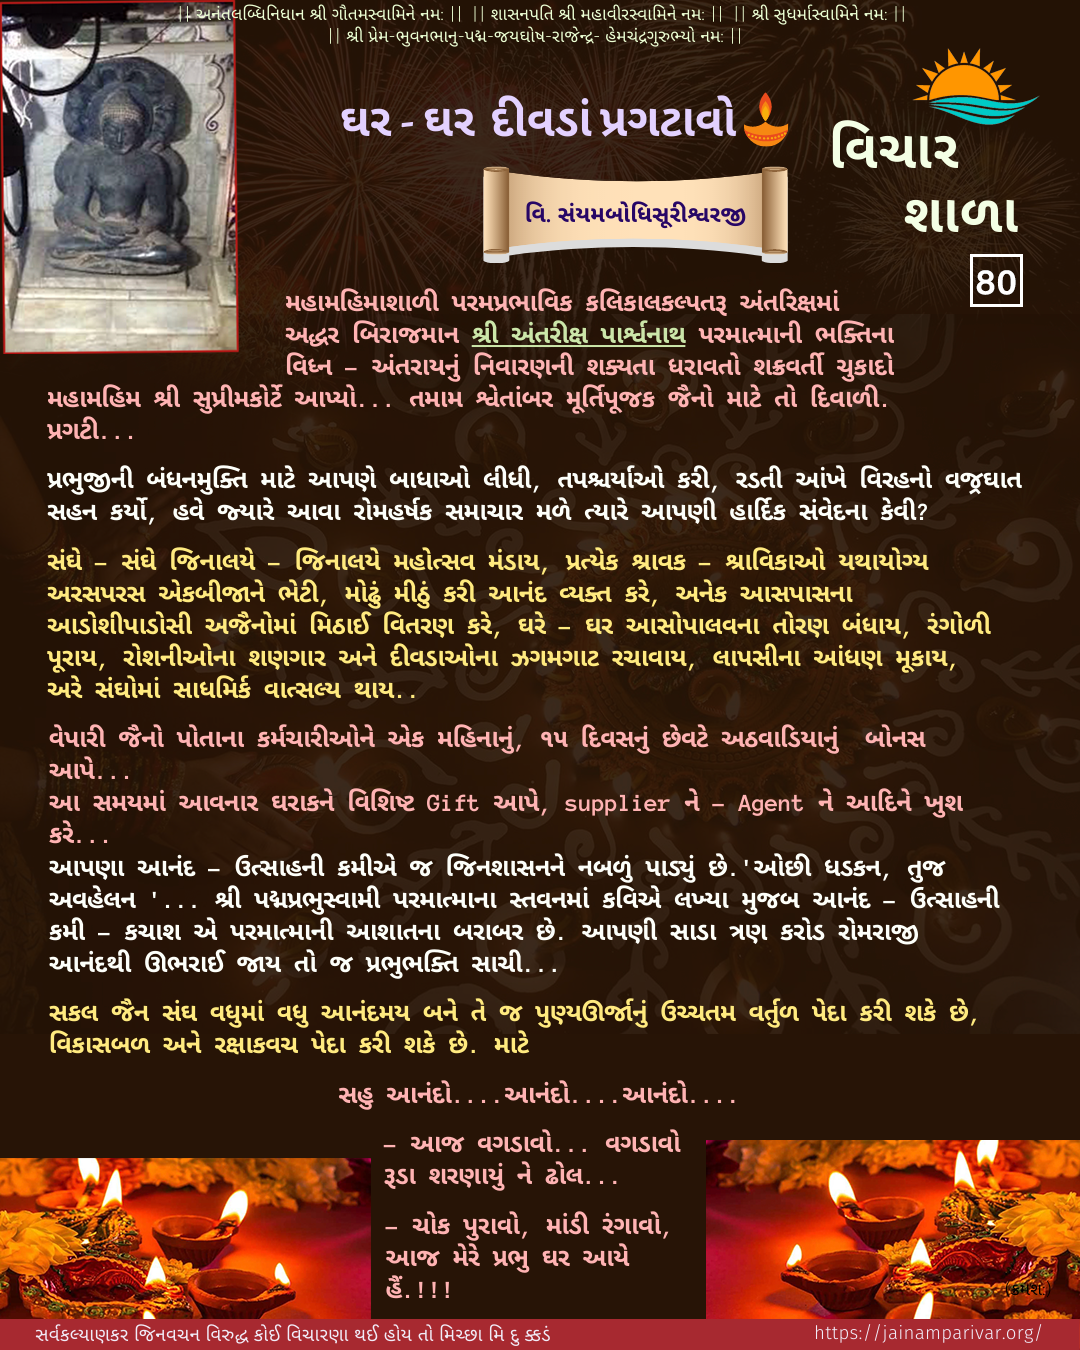 || અનંતલબ્ધિનિધાન શ્રી ગૌતમસ્વામિને નમઃ || || શાસનપતિ શ્રી મહાવીરસ્વામિને નમઃ || || શ્રી સુધર્માસ્વામિને નમઃ ||
|| શ્રી પ્રેમ-ભુવનભાનુ-પદ્મ-જયઘોષ-રાજેન્દ્ર- હેમચંદ્રગુરુભ્યો નમઃ ||
ઘર - ઘર દીવડાં પ્રગટાવો
વિચાર
શાળા
80
વિ. સંયમબોધિસૂરીશ્વરજી
મહામહિમાશાળી પરમપ્રભાવિક કલિકાલકલ્પતરૂ અંતરિક્ષમાં
અદ્ધર બિરાજમાન શ્રી અંતરીક્ષ પાર્શ્વનાથ પરમાત્માની ભક્તિના
વિઘ્ન – અંતરાયનું નિવારણની શક્યતા ધરાવતો શક્રવર્તી ચુકાદો
મહામહિમ શ્રી સુપ્રીમકોર્ટે આપ્યો... તમામ શ્વેતાંબર મૂર્તિપૂજક જૈનો માટે તો દિવાળી.
પ્રગટી...
પ્રભુજીની બંધનમુક્તિ માટે આપણે બાધાઓ લીધી, તપશ્ચર્યાઓ કરી, રડતી આંખે વિરહનો વજ્રઘાત
સહન કર્યો, હવે જ્યારે આવા રોમહર્ષક સમાચાર મળે ત્યારે આપણી હાર્દિક સંવેદના કેવી?
સંઘે – સંઘે જિનાલયે – જિનાલયે મહોત્સવ મંડાય, પ્રત્યેક શ્રાવક – શ્રાવિકાઓ યથાયોગ્ય
અરસપરસ એકબીજાને ભેટી, મોઢું મીઠું કરી આનંદ વ્યક્ત કરે, અનેક આસપાસના
આડોશીપાડોસી અજૈનોમાં મિઠાઈ વિતરણ કરે, ઘરે – ઘર આસોપાલવના તોરણ બંધાય, રંગોળી
પૂરાય, રોશનીઓના શણગાર અને દીવડાઓના ઝગમગાટ રચાવાય, લાપસીના આંધણ મૂકાય,
અરે સંઘોમાં સાધમિર્ક વાત્સલ્ય થાય..
વેપારી જૈનો પોતાના કર્મચારીઓને એક મહિનાનું, ૧૫ દિવસનું છેવટે અઠવાડિયાનું બોનસ
આપે...
આ સમયમાં આવનાર ઘરાકને વિશિષ્ટ Gift આપે, supplier ને – Agent ને આદિને ખુશ
કરે...
આપણા આનંદ – ઉત્સાહની કમીએ જ જિનશાસનને નબળું પાડ્યું છે.'ઓછી ધડકન, તુજ
અવહેલન '... શ્રી પદ્મપ્રભુસ્વામી પરમાત્માના સ્તવનમાં કવિએ લખ્યા મુજબ આનંદ – ઉત્સાહની
કમી – કચાશ એ પરમાત્માની આશાતના બરાબર છે. આપણી સાડા ત્રણ કરોડ રોમરાજી
આનંદથી ઊભરાઈ જાય તો જ પ્રભુભક્તિ સાચી...
સકલ જૈન સંઘ વધુમાં વધુ આનંદમય બને તે જ પુણ્યઊર્જાનું ઉચ્ચતમ વર્તુળ પેદા કરી શકે છે,
વિકાસબળ અને રક્ષાકવચ પેદા કરી શકે છે. માટે
સહુ આનંદો....આનંદો....આનંદો....
– આજ વગડાવો... વગડાવો
રૂડા શરણાયું ને ઢોલ...
– ચોક પુરાવો, માંડી રંગાવો,
આજ મેરે પ્રભુ ઘર આયે
હૈં.!!!
(ક્રમશઃ)
સર્વકલ્યાણકર જિનવચન વિરુદ્ધ કોઈ વિચારણા થઈ હોય તો મિચ્છા મિ દુ ક્કડં
https://jainamparivar.org/